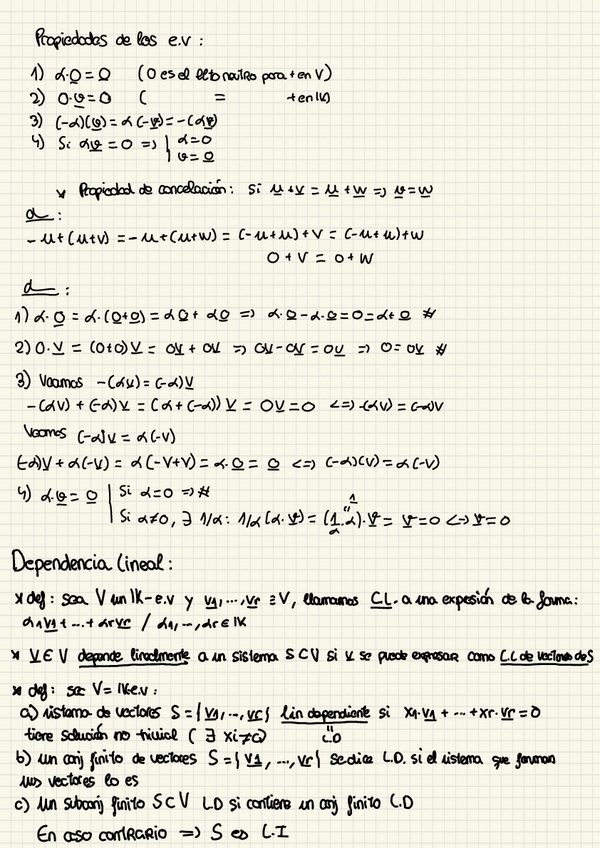 Propiedades de los e.v :
1) α·0 = 0 (0 es el elto neutro para + en V)
2) 0·v = 0 ( = + en IK)
3) (-α)(v) = α(-v) = -(αv)
4) Si αv = 0 => | α=0
| v = 0
* Propiedad de cancelación: Si u+v = u+w => v=w
d :
-u+(u+v) = -u+(u+w) = (-u+u)+v = (-u+u)+w
0+v = 0+w
d :
1) α·0 = α·(0+0) = α0 + α0 => α·0-α·0=0=α+0 #
2) 0·v = (0+0)v = 0v + 0v => 0v-0v = 0v => 0=0v #
3) Veamos -(αv) = (-α)v
-(αv) + (-α)v = (α+(-α)) v = 0v=0 <=> -(αv) = (-α)v
Veamos (-α)v = α(-v)
(-α)v + α(-v) = α(-v+v) = α·0 = 0 <=> (-α)(v) = α(-v)
4) α·v = 0 | Si α=0 => #
| Si α≠0, ∃ 1/α : 1/α (α·v) = (1/α·α)·v = v=0 <-> v=0
1
Dependencia lineal :
* def : sea V un IK-e.v y v1,...,vr ∈ V, llamamos C.L. a una expresión de la forma:
α1v1 + ... + αrvr / α1,...,αr ∈ IK
* v ∈ V depende linealmente a un sistema S⊂V si v se puede expresar como C.L de vectores de S
* def : se V= IKe.v :
a) sistema de vectores S = {v1,...,vr} lin dependiente si x1·v1 + ... + xr·vr = 0
tiene solución no trivial ( ∃ xi≠0) L.D
b) un conj finito de vectores S = {v1,...,vr} se dice L.D. si el sistema que forman
sus vectores lo es
c) un subconj finito S⊂V LD si contiene un conj finito L.D
En caso contrario => S es L.I